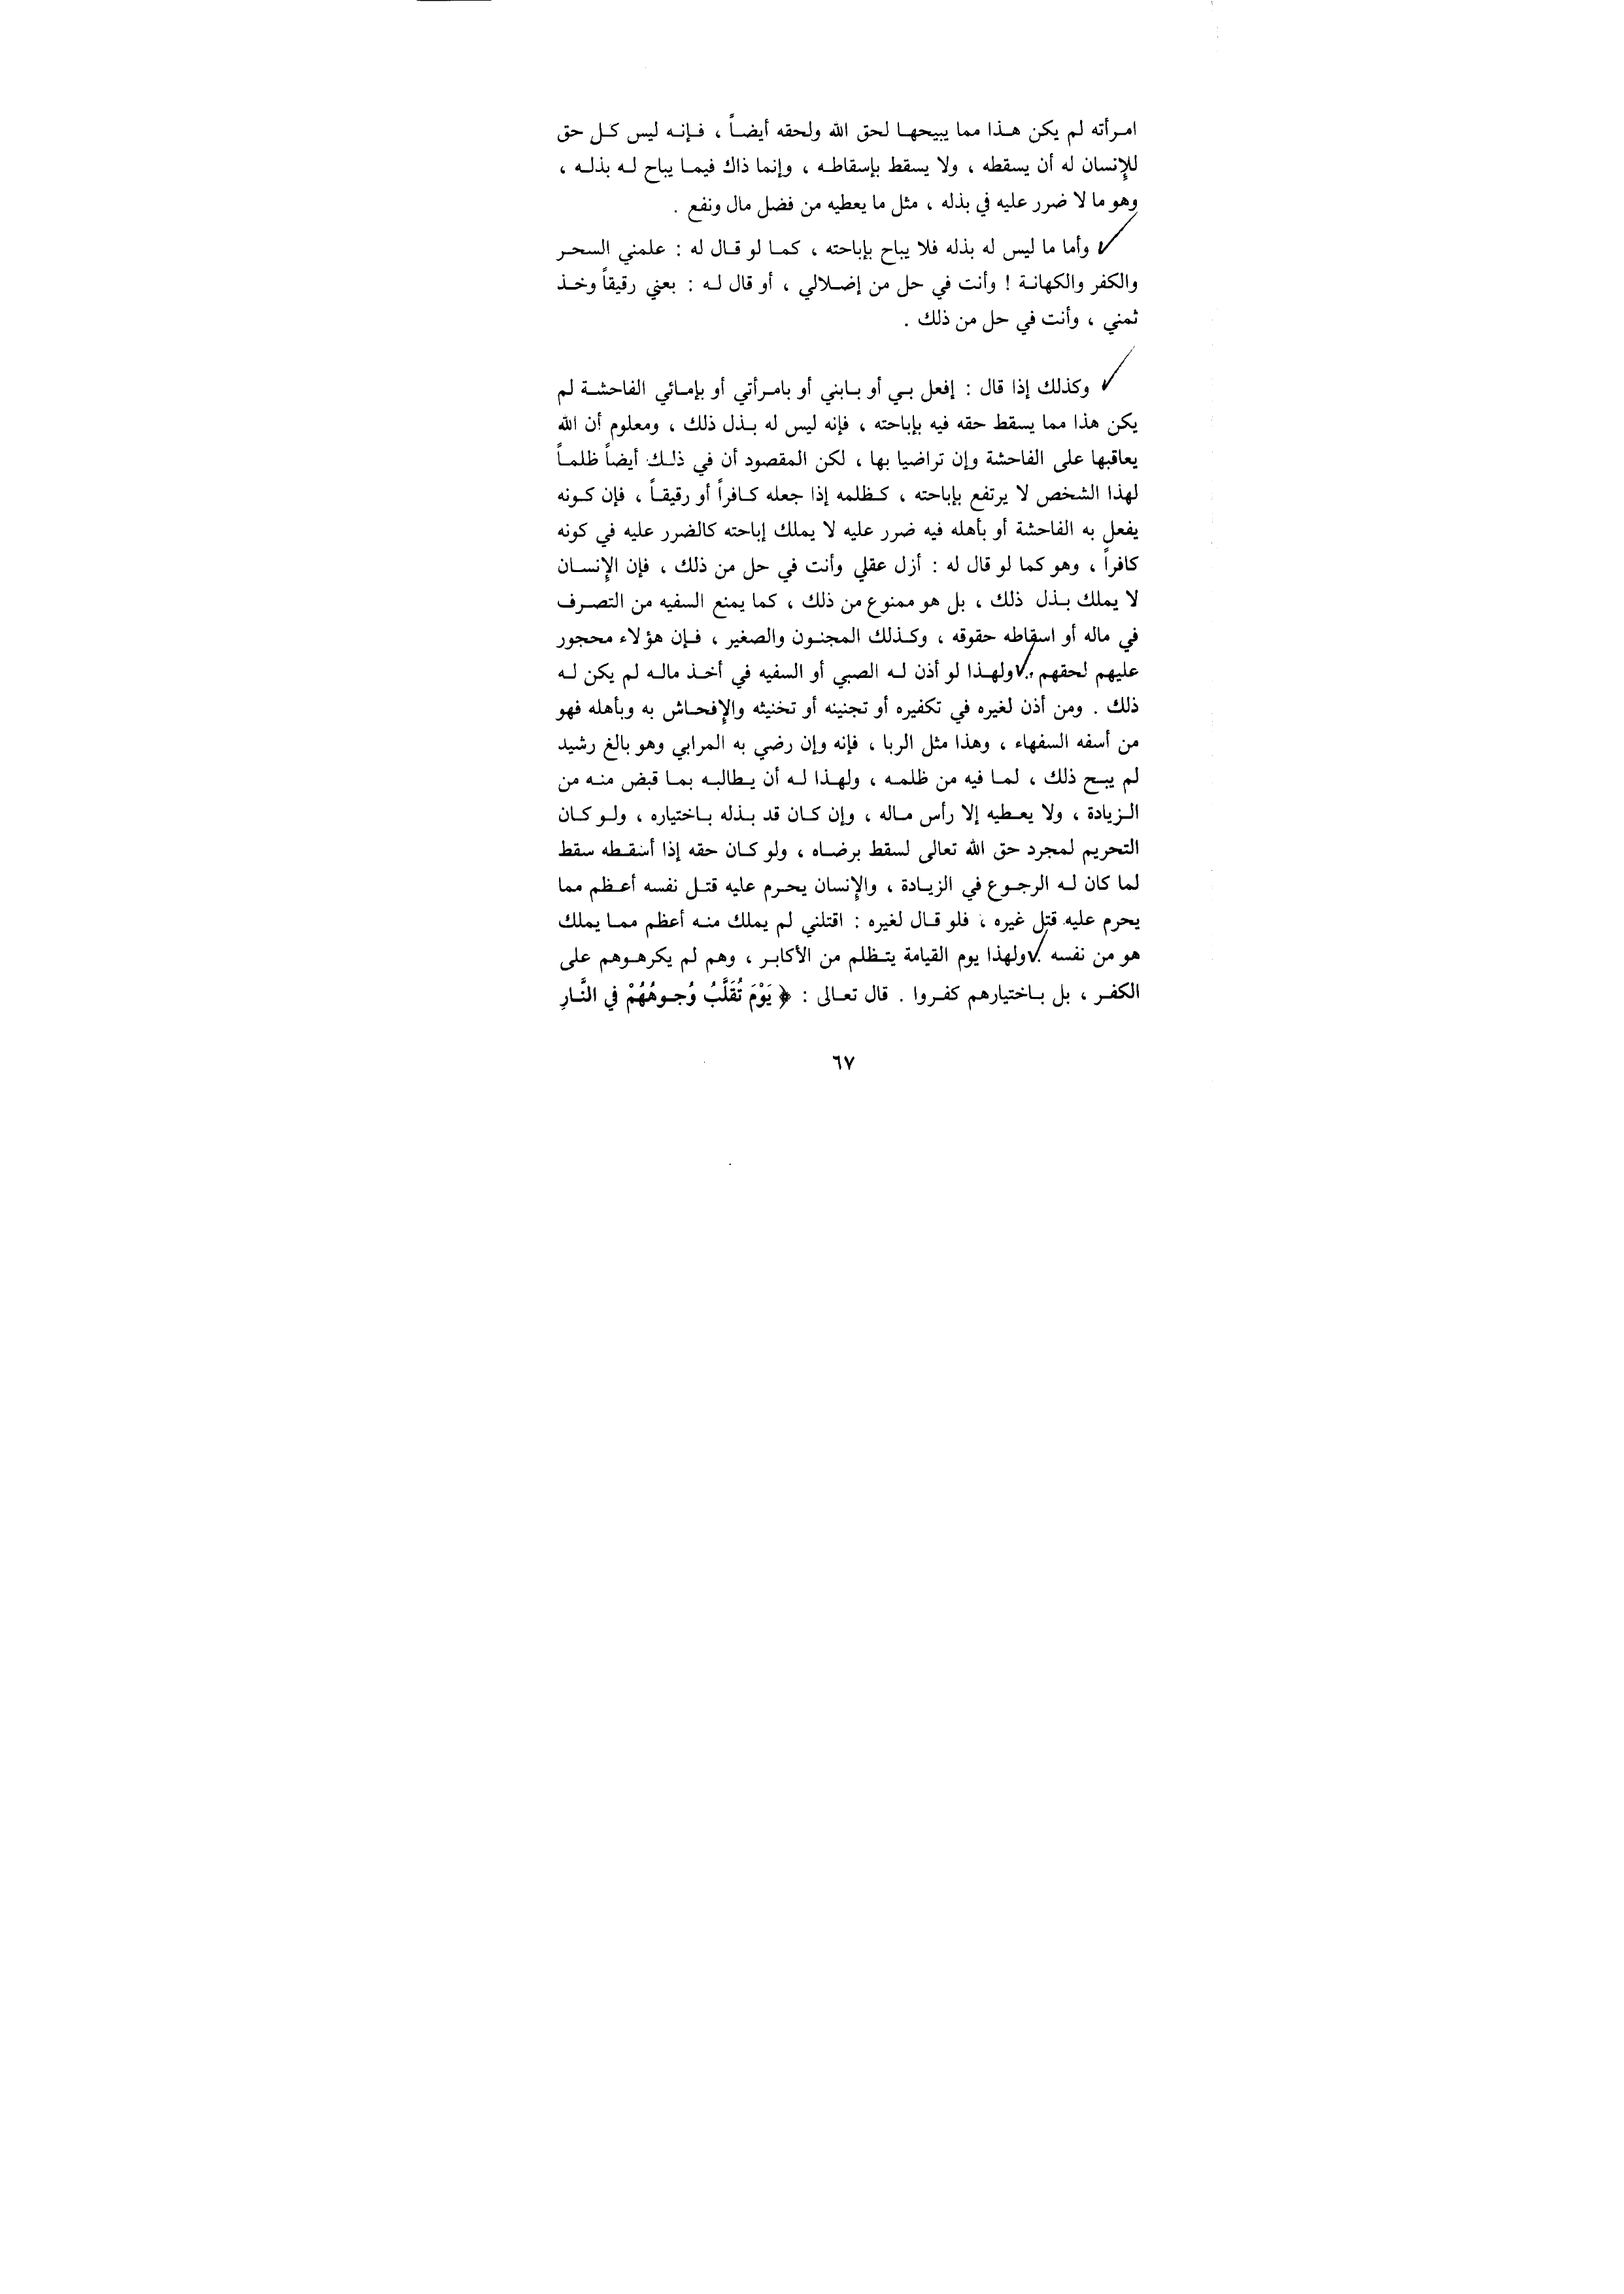 امرأته لم يكن هذا مما يبيحها لحق الله ولحقه أيضاً ، فإنه ليس كل حق
للإنسان له أن يسقطه ، ولا يسقط بإسقاطه ، وإنما ذاك فيما يباح له بذله ،
وهو ما لا ضرر عليه في بذله ، مثل ما يعطيه من فضل مال ونفع .
وأما ما ليس له بذله فلا يباح بإباحته ، كما لو قال له : علمني السحر
والكفر والكهانة ! وأنت في حل من إضلالي ، أو قال له : بعني رقيقاً وخذ
ثمني ، وأنت في حل من ذلك .
وكذلك إذا قال : إفعل بي أو بابني أو بامرأتي أو بإمائي الفاحشة لم
يكن هذا مما يسقط حقه فيه بإباحته ، فإنه ليس له بذل ذلك ، ومعلوم أن الله
يعاقبها على الفاحشة وإن تراضيا بها ، لكن المقصود أن في ذلك أيضاً ظلماً
لهذا الشخص لا يرتفع بإباحته ، كظلمه إذا جعله كافراً أو رقيقاً ، فإن كونه
يفعل به الفاحشة أو بأهله فيه ضرر عليه لا يملك إباحته كالضرر عليه في كونه
كافراً ، وهو كما لو قال له : أزل عقلي وأنت في حل من ذلك ، فإن الإنسان
لا يملك بذل ذلك ، بل هو ممنوع من ذلك ، كما يمنع السفيه من التصرف
في ماله أو اسقاطه حقوقه ، وكذلك المجنون والصغير ، فإن هؤلاء محجور
عليهم لحقهم . ولهذا لو أذن له الصبي أو السفيه في أخذ ماله لم يكن له
ذلك . ومن أذن لغيره في تكفيره أو تجنينه أو تخنيثه والإفحاش به وبأهله فهو
من أسفه السفهاء ، وهذا مثل الربا ، فإنه وإن رضي به المرابي وهو بالغ رشيد
لم يبح ذلك ، لما فيه من ظلمه ، ولهذا له أن يطالبه بما قبض منه من
الزيادة ، ولا يعطيه إلا رأس ماله ، وإن كان قد بذله باختياره ، ولو كان
التحريم لمجرد حق الله تعالى لسقط برضاه ، ولو كان حقه إذا أسقطه سقط
لما كان له الرجوع في الزيادة ، والإنسان يحرم عليه قتل نفسه أعظم مما
يحرم عليه قتل غيره ، فلو قال لغيره : اقتلني لم يملك منه أعظم مما يملك
هو من نفسه . ولهذا يوم القيامة يتظلم من الأكابر ، وهم لم يكرهوهم على
الكفر ، بل باختيارهم كفروا . قال تعالى : ﴿ يَوْمَ تُقَلَّبُ وُجوهُهُمْ في النَّارِ
٦٧